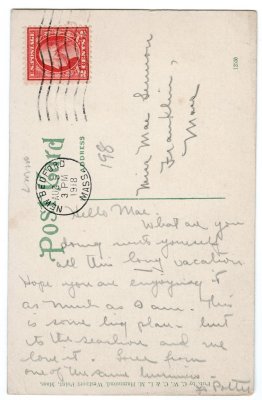 U.S. POSTAGE
NEW BEDFORD
3 PM
1918
MASS.
198
1200
Post Card
ADDRESS
Miss Mae
Franklin,
Mass
Hello Mae.
What are you
doing with yourself
all this long vacation.
Hope you are enjoying it
as much as I am. This
is some big place. Went
to the seashore and we
love it. Love from
one of the same
Pub. by C. W. C. & L. M. Hammond, Westport Point, Mass.